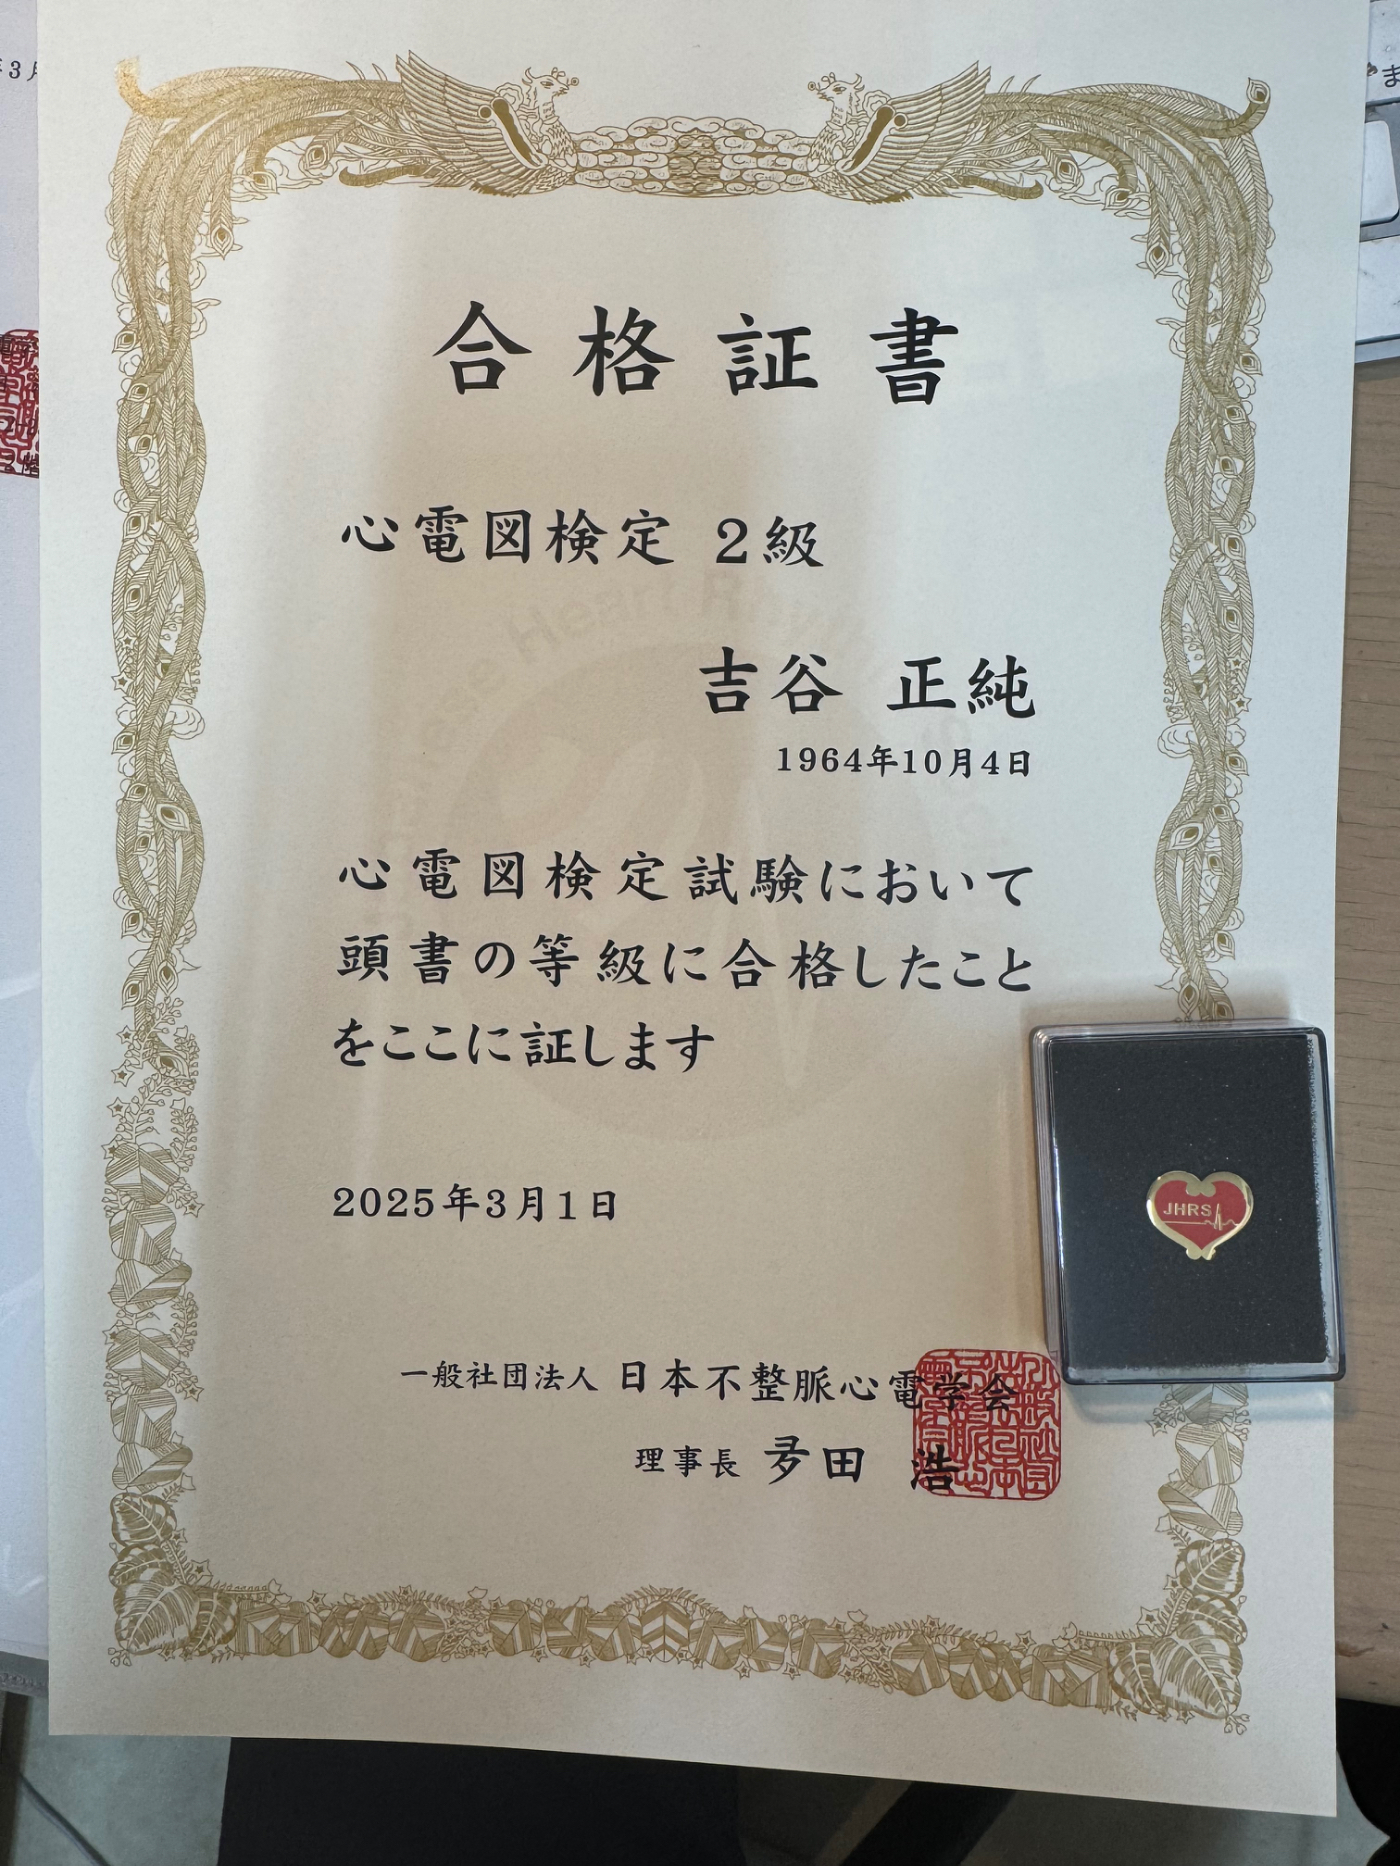 合格証書
心電図検定 2級
吉谷 正純
1964年10月4日
心電図検定試験において
頭書の等級に合格したこと
をここに証します
2025年3月1日
一般社団法人 日本不整脈心電学会
理事長 夛田 浩
JHRS